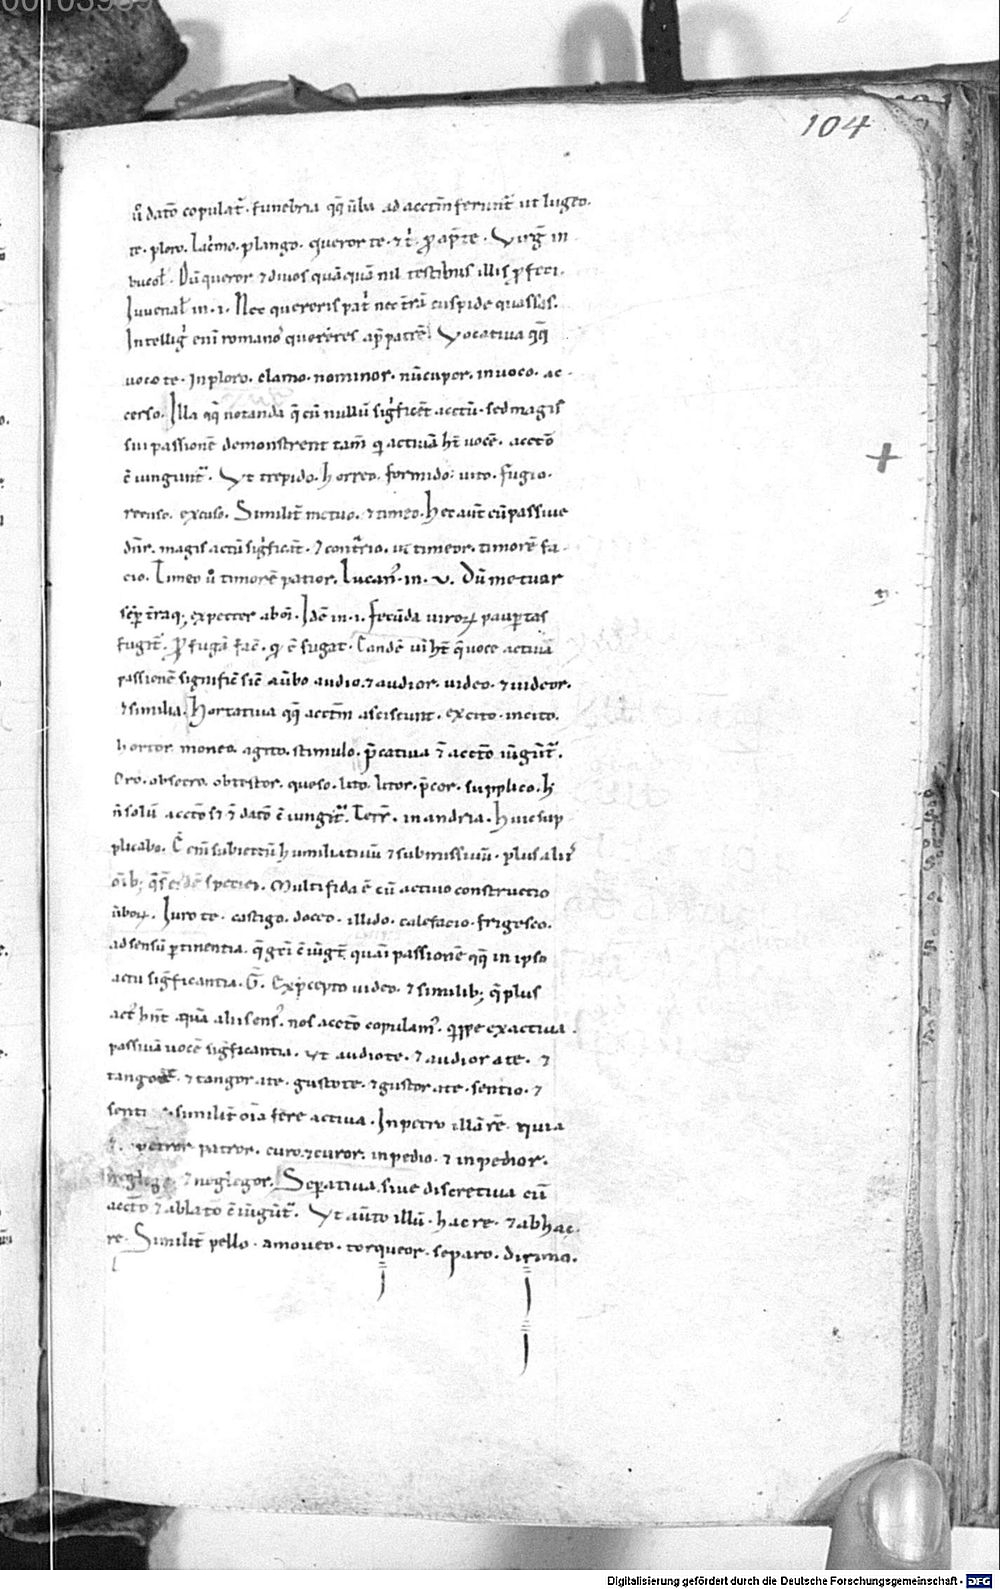 104
ů datō copulat̄. funebria qq̄ ūba ad acctm̄ ferunt̄ ut lugeo.
te. ploro. lac̄mo. plango. queror te. & t̄. ꝓ ap̄ te. Virḡ in
bucol̄. Dū queror & diuos quāquā nil testibus illis ꝓfeci.
Iuuenal̄ in .i. Nec quereris pat̄ nec t̄rā cuspide quassas.
Intelliḡ eni romano querēres ap̄ patrē. Vocatiua qq̄
uoco te. Inploro. clamo. nominor. nūcupor. inuoco. ac
cerso. Illa qq̄ notanda q̄ cū nullū siḡficent acctū. sed magis
sui passionē demonstrent tam̄ q̄ actiuā hn̄t uocē. acctō
ē iungunt̄. Vt trepido. horreo. formido. uito. fugio.
recuso. excuso. Similit̄ metuo. & timeo. hec aut̄ cū passiue
dn̄r. magis actū siḡficant. & contrario. ut timeor. timorē fa
cio. Timeo ů timorē patior. Lucan̄. in .v. Dū metuar
semp̄ t̄raq; expecter abom̄. Idē in .i. fecūda uiroꝝ paup̄tas
fugit̄. ꝓ fugā fac̄. qd̄ ē fugat. Eandē uim hn̄t q̄ uoce actiuā
passionē significāt sic̄ ambo audio. & audior. uideo. & uideor.
& similia. Hortatiua qq̄ acctm̄ asciscunt. excito. incito.
hortor moneo. agito. stimulo. p̄catiua ē acctō iūgūt̄.
Oro. obsecro. obtestor. queso. lito. litor. p̄cor. supplico. h̄
n̄ solū acctō s; & datō ē iungit̄. Terr̄. in andria. Huic sup
plicabo. Ē enī subiectū humiliatiuū & submissiuū. plus aliis
oīb; speciei. Multifida ē cū actiuo constructio
ūboꝝ. Iuro te. castigo. doceo. illido. calefacio. frigesco.
ad sensū p̄tinentia. q̄ gt̄i ē iūgt̄ quā passionē qq̄ in ipso
actu siḡficantia. G̅. Excepto uideo. & similib; q̄ plus
act̄ hn̄t quā alii sens̄. nos acctō copulam̄. quippe ex actiua
passiuā uocē siḡficantia. Vt audio te. & audior a te. &
tango te. & tangor a te. gusto te. & gustor a te. sentio. &
senti similit̄ oīa fere actiua. Inpetro illā rē.
petror patror. curo. & curor. inpedio. & inpedior.
neglego & neglegor. Separatiua siue discretiua cū
acctō & ablatō ē iūgūt̄. Vt aūto illū. hac re. & ab hac
re. Similit̄ pello. amoueo. torqueor. separo. dirimo.
Digitalisierung gefördert durch die Deutsche Forschungsgemeinschaft - DFG